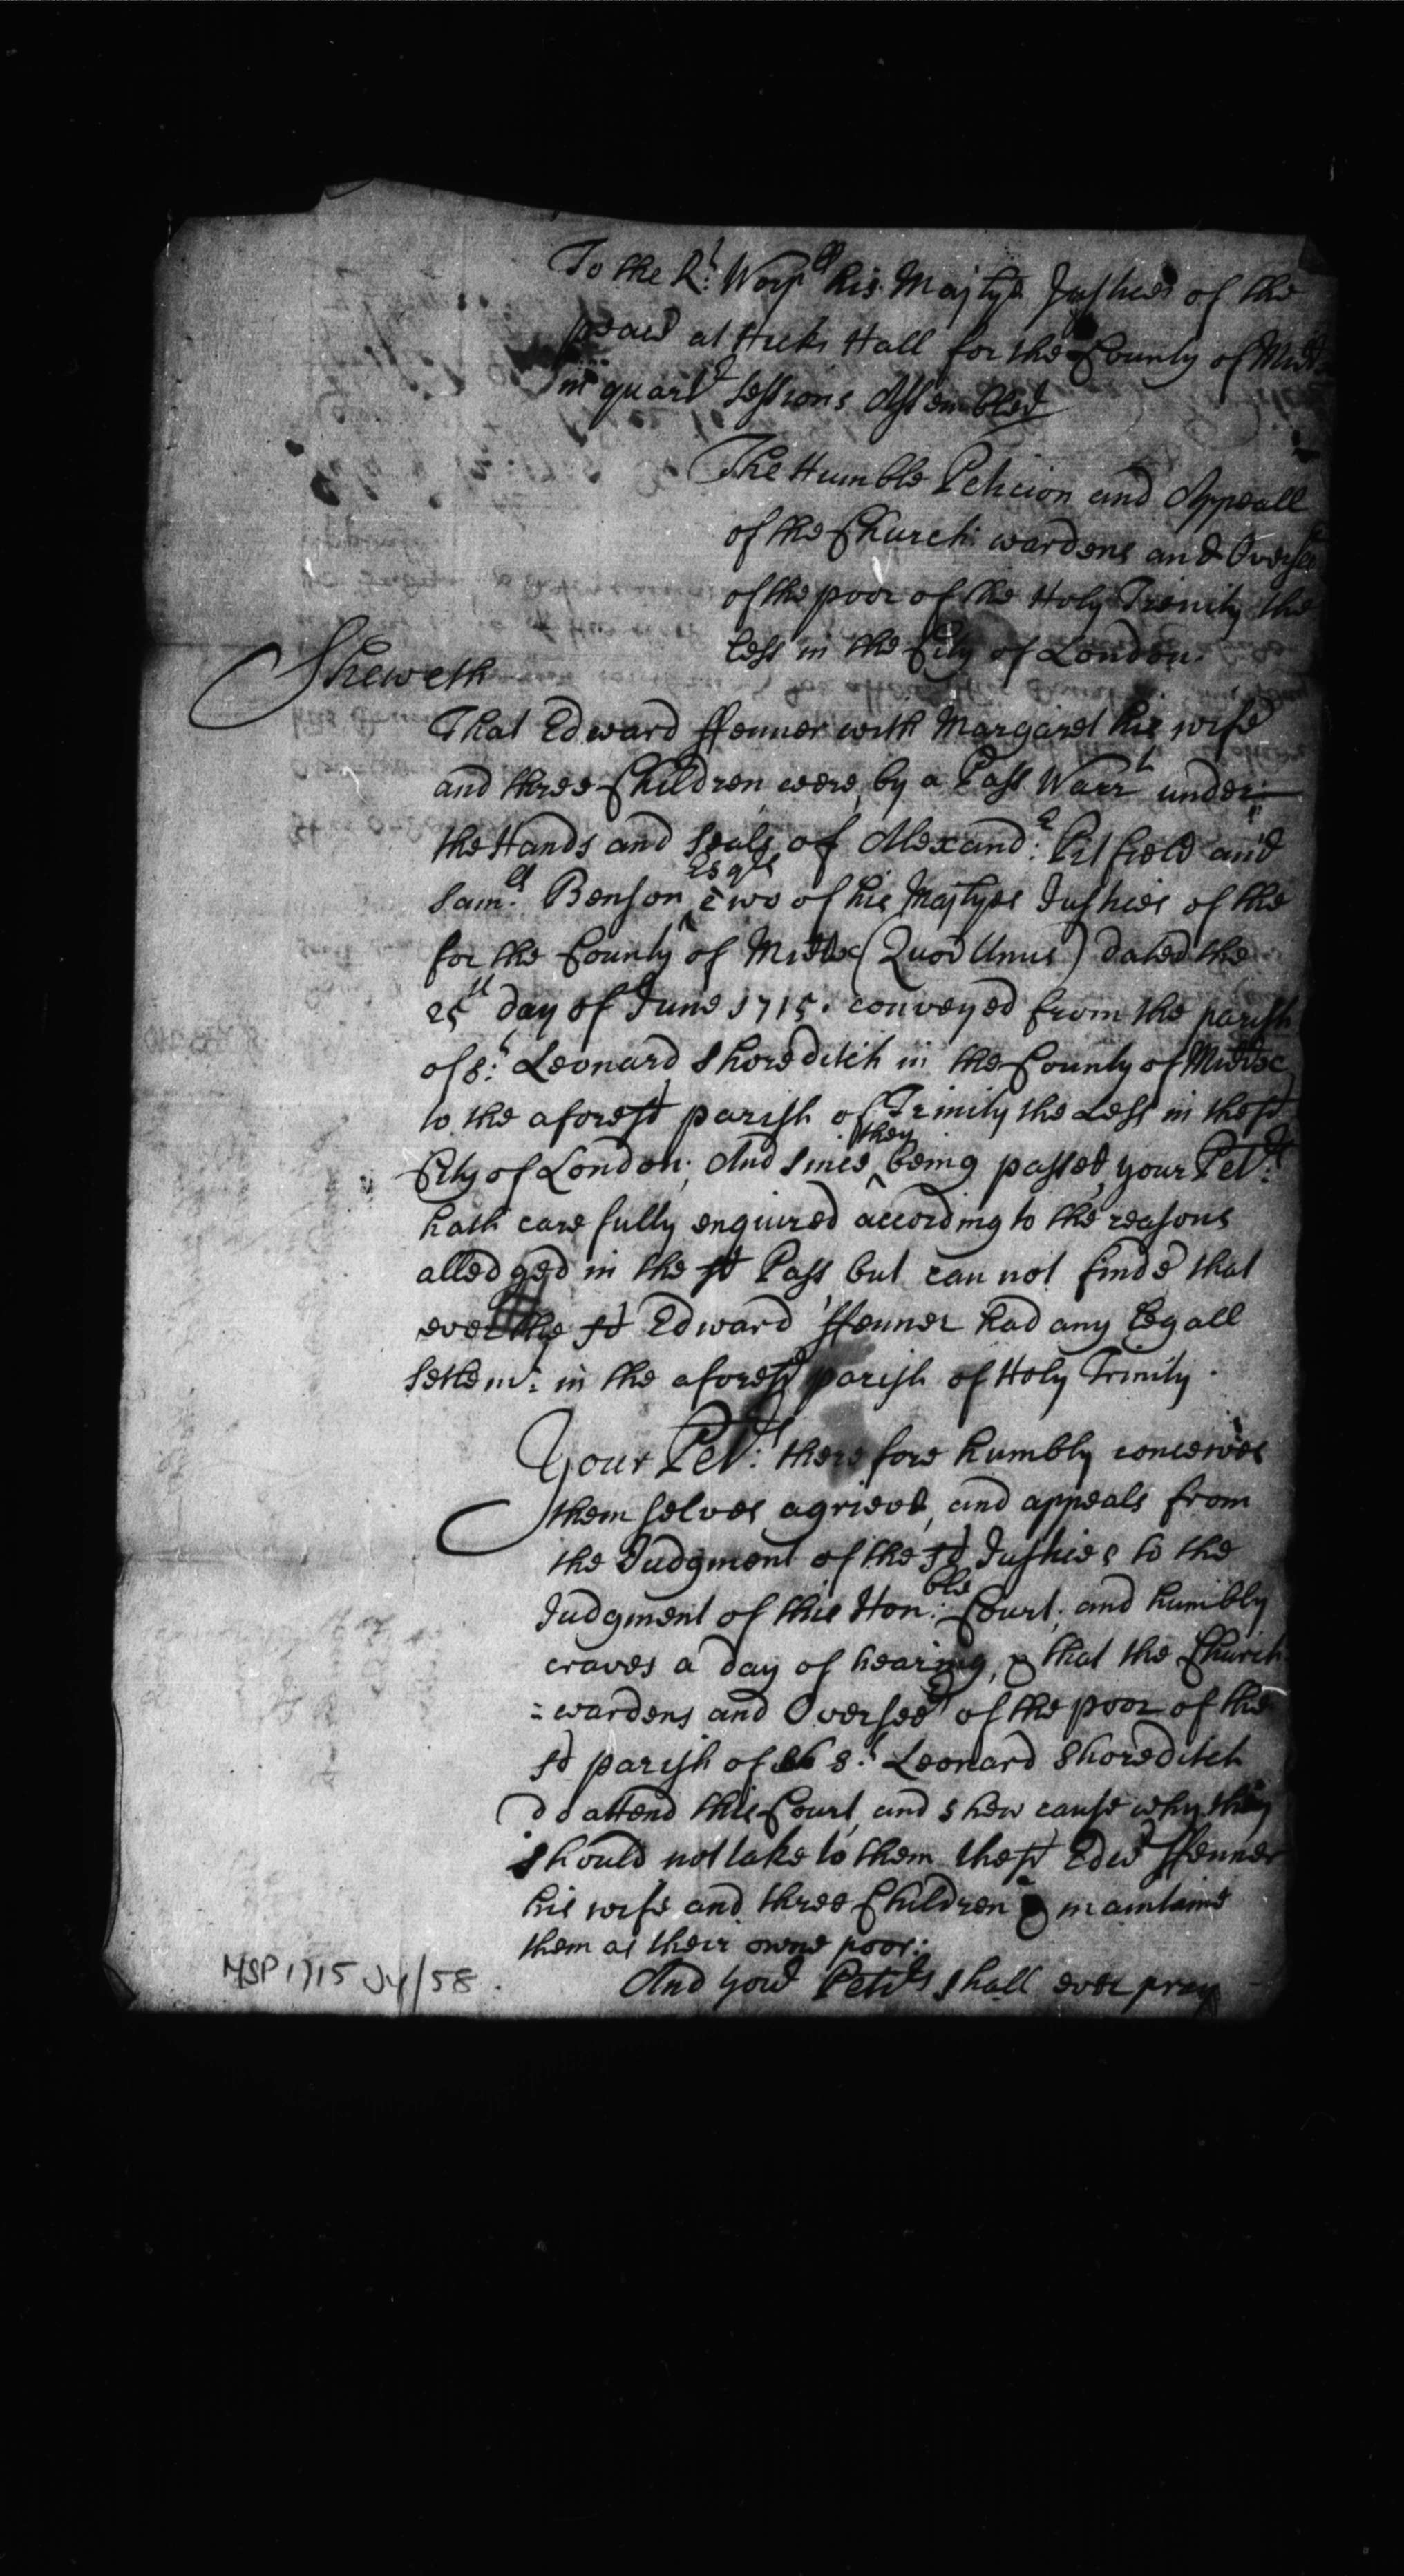 To the Rt. Worpll his Majtyes Justices of the
peace at Hicks Hall for the County of Middx
in quartr Sessions Assembled
The Humble Peticion and Appeall
of the Church: wardens and Overse
of the poor of the Holy Trenity the
less in the City of London.
Sheweth
That Edward ffenner with Margaret his wife
and three Children were, by a Pass Warrt under
the Hands and Seals of Alexandr: Pitfield and
Samll. Benson Esqrs two of his Majtyes Justices of the
for the County of Middx (Quor Unus) dated the
25th day of June 1715. conveyed from the parish
of St: Leonard Shoreditch in the County of Middx
to the aforesd parish of Trinity the Less in the sd
City of London; And since they being passed, your Petrs:
hath carefully enquired according to the reasons
alledged in the sd Pass but can not finde that
ever the sd Edward ffenner had any legall
Settlemt: in the aforesd parish of Holy Trinity.
Your Petrs: therefore humbly conceives
themselves agrieved, and appeals from
the Judgment of the sd Justices to the
Judgment of this Hon:ble Court; and humbly
craves a day of hearing, & that the Church
=wardens and Overseers of the poor of the
sd parish of St. Leonard Shoreditch
do attend this Court, and shew cause why they
should not take to them the sd Edwd ffenner
his wife and three Children & maintaine
them as their owne poor:
And your Petrs shall ever pray
MSP 1715 Jy/58